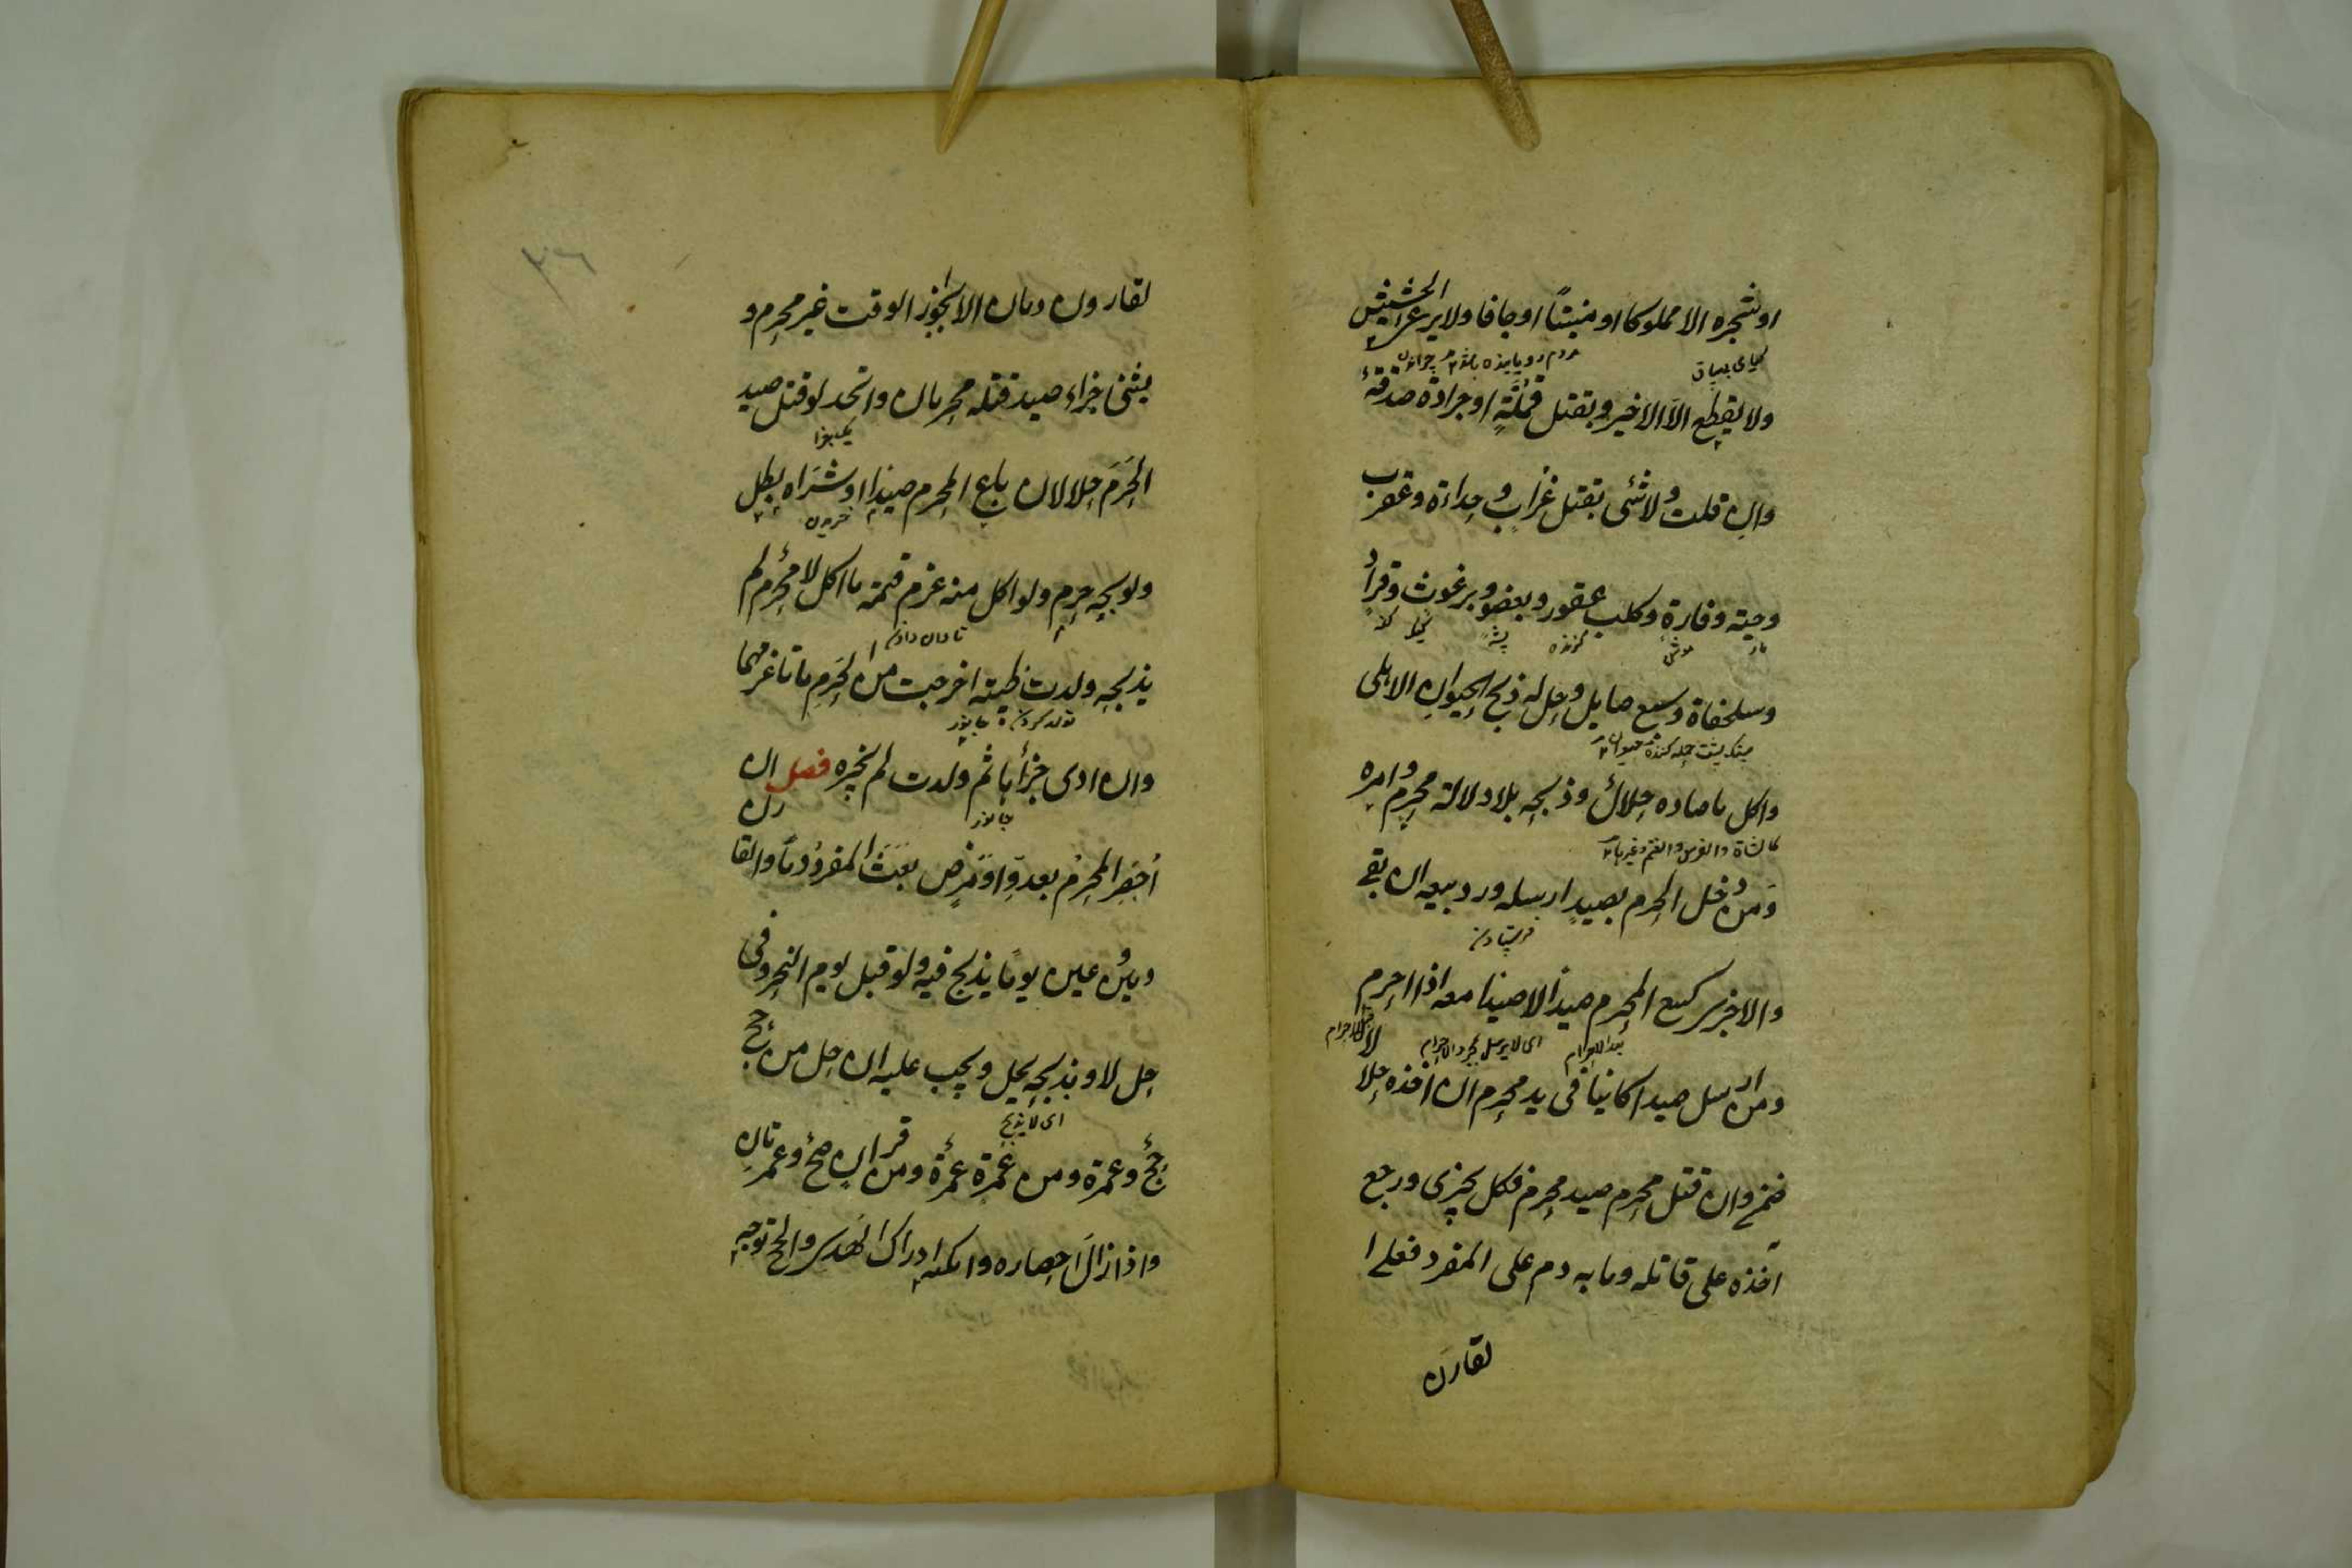 او شجره الا مملوكا او منبتًا او جافا ولا يرعى الحشيش
ولا يقطع الا الاذخر وبقتل قملةٍ او جرادة صدقةٌ
وان قلت ولا شئ بقتل غراب وحداءة وعقرب
وحية وفارة وكلب عقور وبعوض وبرغوث وقراد
مار موش گزنده پشه كيك
وسلحفاة وسبع صايل وحل له ذبح الحيوان الاهلى
سنگ پشت حمله كننده حيوان
واكل ما صاده حلالٌ وذبحه بلا دلالة محرم وامره
كالشاة والفرس والغنم وغيرها
ومن دخل الحرم بصيدٍ ارسله ورد بيعه ان بقى
فرستادن
والا جزى كبيع المحرم صيداً لا صيدا معه اذا احرم
بعد الاحرام اى لا يرسل بمجرد الاحرام قبل الاحرام
ومن ارسل صيدا كاينا فى يد محرم ان اخذه حلالا
ضمن وان قتل محرم صيد محرم فكل يجزى ورجع
اخذه على قاتله وما به دم على المفرد فعلى ا
لقارن
٣٦
لقارن دمان الا بجوز الوقت غير محرم و
يثنى جزاء صيد قتله محرمان واتحد لو قتل صيد
الحرم حلالان باع المحرم صيدا او شراه بطل
خريدن
ولو ذبحه حرم ولو اكل منه غرم قيمة ما اكل لا محرم لم
تاوان دادن
يذبحه ولدت ظبية اخرجت من الحرم ماتا غرمهما
تولد كردن جانور
وان ادى جزأها ثم ولدت لم يجزه فصل ان
جانور
أحصر المحرم بعدوٍ او مرض بعث المفرد دماً والقارن
دمين وعين يوما يذبح فيه ولو قبل يوم النحر وفى
حل لا وبذبحه يحل ويجب عليه ان حل من حج
اى لا يذبح
حج وعمرة ومن عمرة عمرة ومن قران حج وعمرتان
واذا زال احصاره وامكنه ادراك الهدى والحج توجه